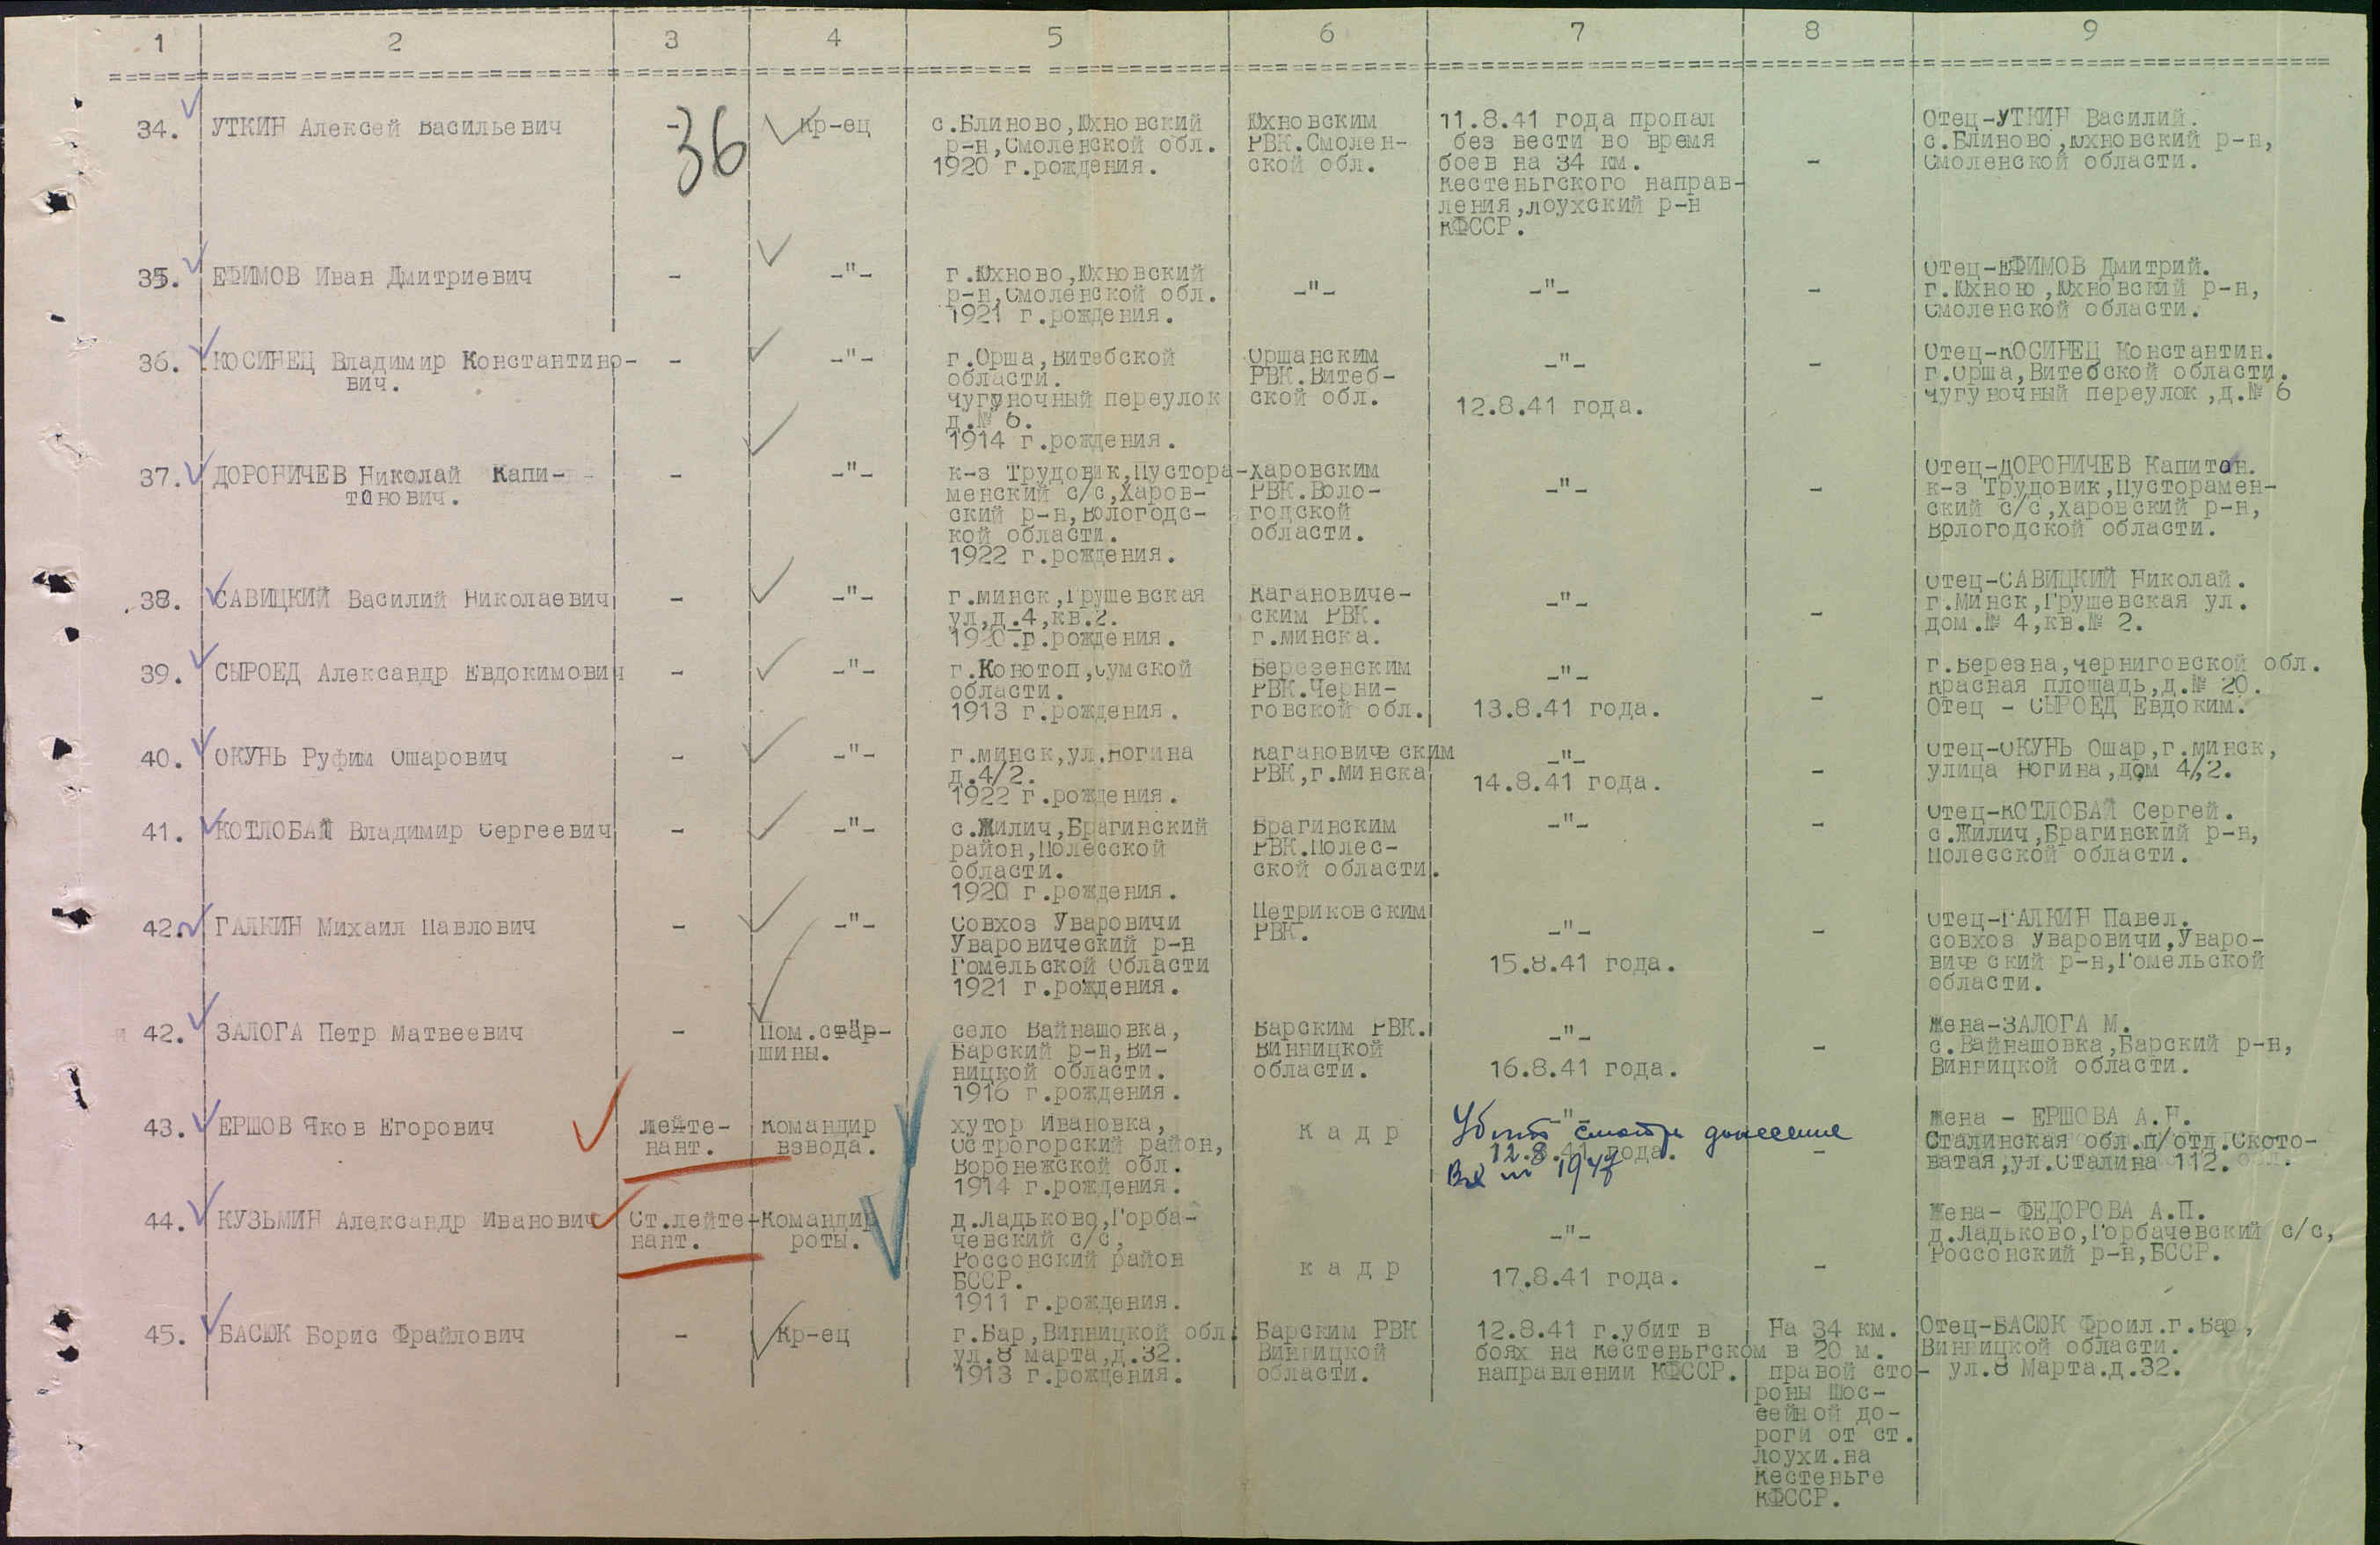 1 2 3 4 5 6 7 8 9
36
34. УТКИН Алексей Васильевич - Кр-ец с.Блиново,Юхновский Юхновским 11.8.41 года пропал Отец-УТКИН Василий.
р-н,Смоленской обл. РВК.Смолен- без вести во время с.Блиново,Юхновский р-н,
1920 г.рождения. ской обл. боев на 34 км. - Смоленской области.
Кестеньгского направ-
ления,Лоухский р-н
КФССР.
35. ЕФИМОВ Иван Дмитриевич - -"- г.Юхново,Юхновский -"- -"- - Отец-ЕФИМОВ Дмитрий.
р-н,Смоленской обл. г.Юхною,Юхновский р-н,
1921 г.рождения. Смоленской области.
36. КОСИНЕЦ Владимир Константино- - -"- г.Орша,Витебской Оршанским -"- - Отец-КОСИНЕЦ Константин.
вич. области. РВК.Витеб- г.Орша,Витебской области.
чугуночный переулок ской обл. 12.8.41 года. чугуночный переулок,д.№ 6
д.№ 6.
1914 г.рождения.
37. ДОРОНИЧЕВ Николай Капи- - -"- к-з Трудовик,Пустора- Харовским -"- - Отец-ДОРОНИЧЕВ Капитон.
тонович. менский с/с,Харов- РВК.Воло- к-з Трудовик,Пусторамен-
ский р-н,Вологодс- годской ский с/с,Харовский р-н,
кой области. области. Вологодской области.
1922 г.рождения.
38. САВИЦКИЙ Василий Николаевич - -"- г.Минск,Грушевская Кагановиче- -"- - Отец-САВИЦКИЙ Николай.
ул,д.4,кв.2. ским РВК. г.Минск,Грушевская ул.
1920 г.рождения. г.Минска. дом.№ 4,кв.№ 2.
39. СЫРОЕД Александр Евдокимович - -"- г.Конотоп,Сумской Березенским -"- - г.Березна,Черниговской обл.
области. РВК.Черни- Красная площадь,д.№ 20.
1913 г.рождения. говской обл. 13.8.41 года. Отец - СЫРОЕД Евдоким.
40. ОКУНЬ Руфим Ошарович - -"- г.Минск,ул.Ногина Кагановическим -"- - Отец-ОКУНЬ Ошар,г.Минск,
д.4/2. РВК,г.Минска 14.8.41 года. улица Ногина,дом 4/2.
1922 г.рождения.
41. КОТЛОБАЙ Владимир Сергеевич - -"- с.Жилич,Брагинский Брагинским -"- - Отец-КОТЛОБАЙ Сергей.
район,Полесской РВК.Полес- с.Жилич,Брагинский р-н,
области. ской области. Полесской области.
1920 г.рождения.
42. ГАЛКИН Михаил Павлович - -"- Совхоз Уваровичи Петриковским -"- - Отец-ГАЛКИН Павел.
Уваровический р-н РВК. совхоз Уваровичи,Уваро-
Гомельской Области 15.8.41 года. вический р-н,Гомельской
1921 г.рождения. области.
42. ЗАЛОГА Петр Матвеевич - Пом.стар- село Вайнашовка, Барским РВК. -"- - Жена-ЗАЛОГА М.
шины. Барский р-н,Ви- Винницкой с.Вайнашовка,Барский р-н,
ницкой области. области. 16.8.41 года. Винницкой области.
1916 г.рождения.
43. ЕРШОВ Яков Егорович лейте- Командир хутор Ивановка, кадр -"- - Жена - ЕРШОВА А.Н.
нант. взвода. Острогорский район, Убит смотри донесение Сталинская обл.п/отд.Ското-
Воронежской обл. 12.8.41 года. ватая,ул.Сталина 112.
1914 г.рождения. 194
44. КУЗЬМИН Александр Иванович Ст.лейте- Командир д.Ладьково,Горба- кадр -"- - Жена- ФЕДОРОВА А.П.
нант. роты. чевский с/с, д.Ладьково,Горбачевский с/с,
Россонский район Россонский р-н,БССР.
БССР. 17.8.41 года.
1911 г.рождения.
45. БАСЮК Борис Фрайлович - Кр-ец г.Бар,Винницкой обл. Барским РВК 12.8.41 г.убит в На 34 км. Отец-БАСЮК Фроил.г.Бар,
ул.8 марта,д.32. Винницкой боях на Кестеньгском в 20 м. Винницкой области.
1913 г.рождения. области. направлении КФССР. правой сто- ул.8 Марта.д.32.
роны Шос-
сейной до-
роги от ст.
Лоухи.на
Кестеньге
КФССР.